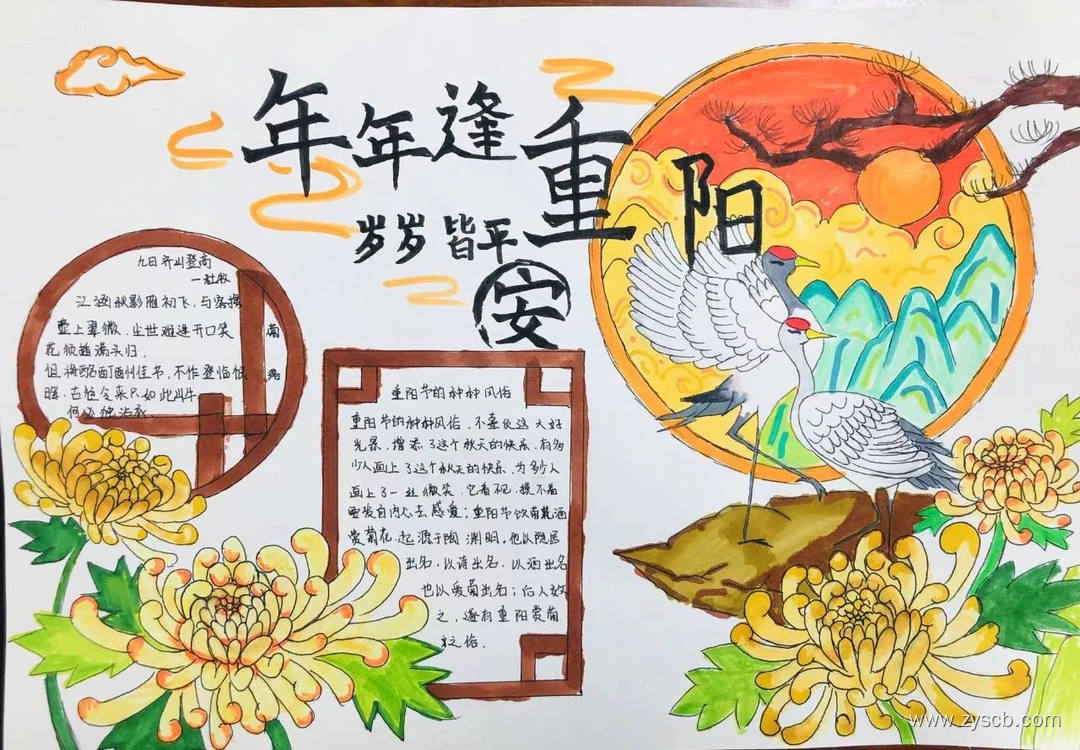 年年逢重阳
岁岁皆平安
九日齐山登高
一杜牧
江涵秋影雁初飞,与客携
壶上翠微.尘世难逢开口笑
菊
花须插满头归.
但将酩酊酬佳节,不作登临恨
落
晖.古往今来只如此,牛
何必独沾衣
重阳节的种种风俗
重阳节的种种风俗,不喜
大好
光景,增添了这个秋天的快乐.有多
少人画上了这个秋天的快乐.为多少人
画上了一丝微笑.它看不见.摸不着
要发自内心去感受;重阳节饮菊花酒
赏菊花.起源于陶渊明.他以隐居
出名,以诗出名.以酒出名
也以爱菊出名;后人效
之,遂有重阳赏菊
之俗.
www.zyscb.com